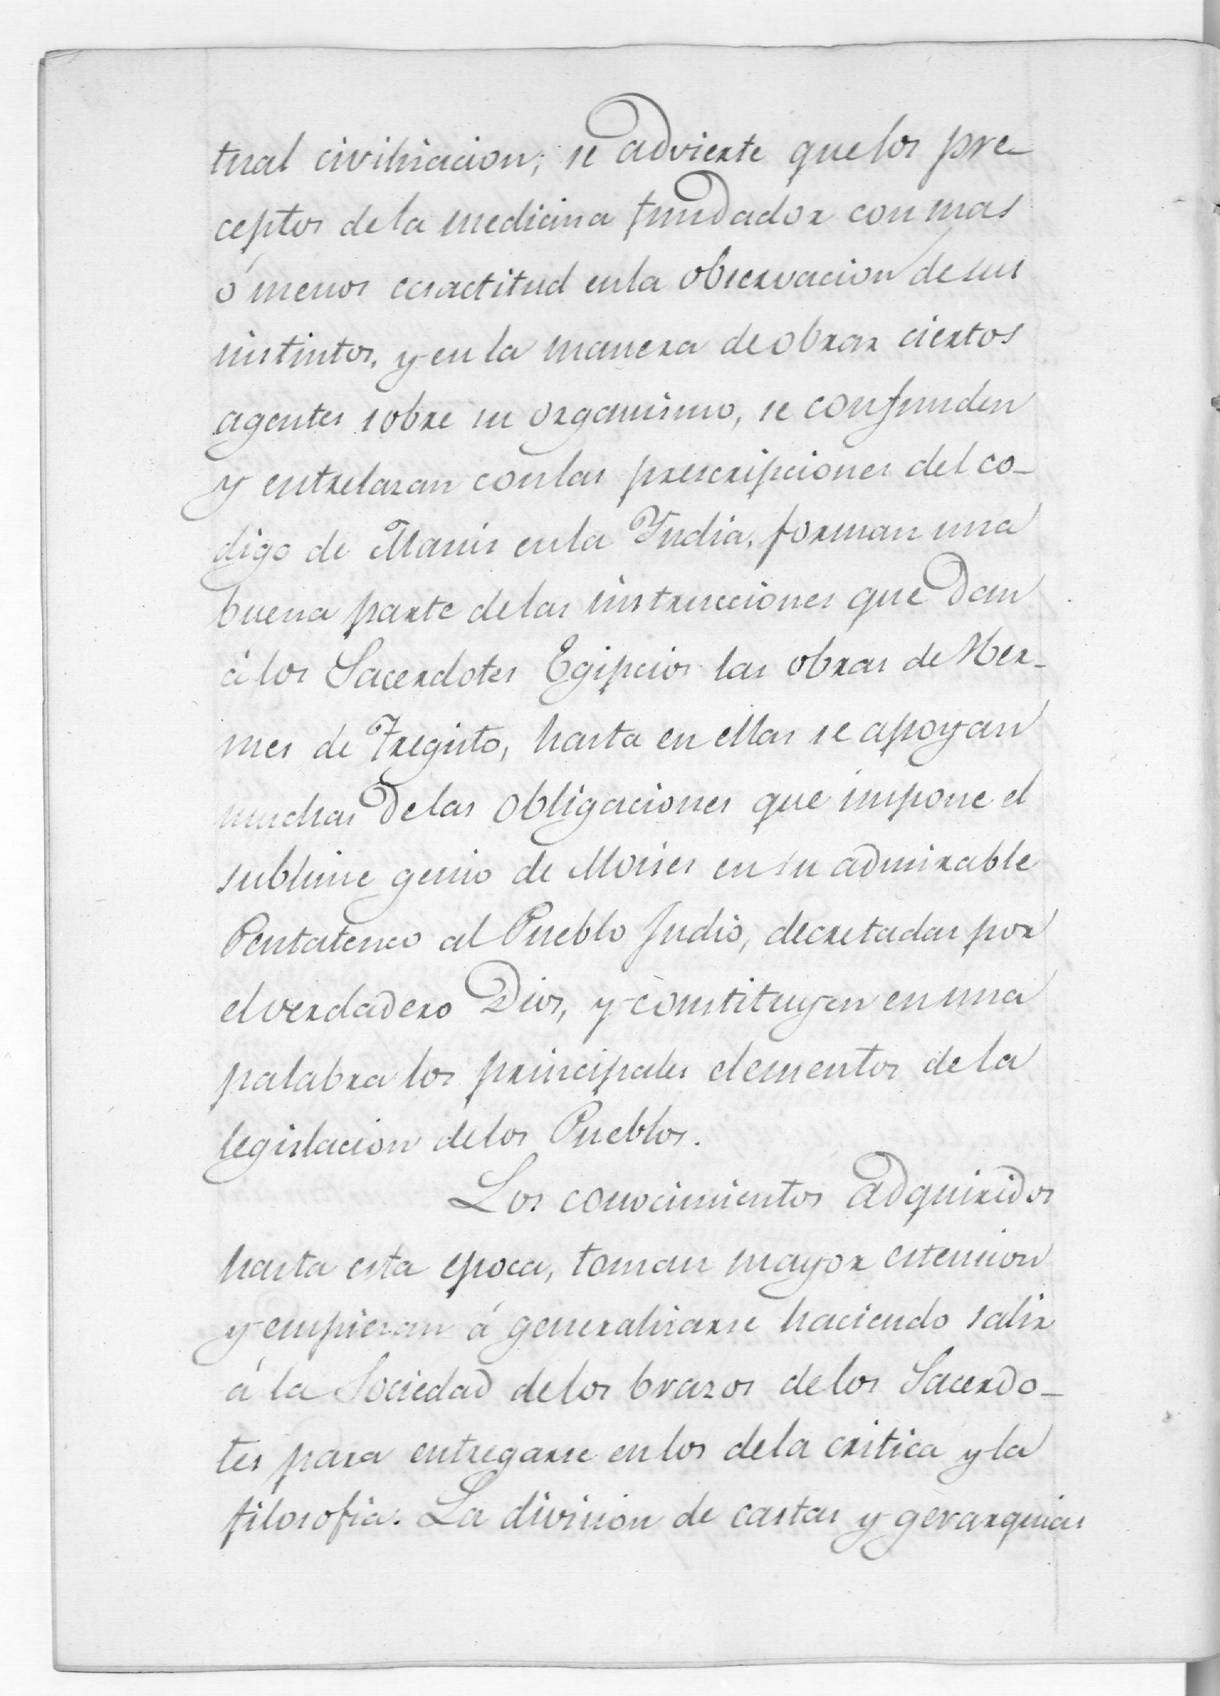 tual civilizacion; se advierte que los pre-
ceptos de la medicina fundados con mas
ó menos ecsactitud en la observacion de sus
instintos, y en la manera de obrar ciertos
agentes sobre su organismo, se confunden
y entrelazan con las prescripciones del co-
digo de Manús en la Yndia, forman una
buena parte de las instrucciones que dan
á los Sacerdotes Egipcios las obras de Her-
mes de Tregisto, hasta en ellas se apoyan
muchas de las obligaciones que impone el
sublime genio de Moises en su admirable
Pentateuco al Pueblo Judio, decretadas por
el verdadero Dios, y constituyen en una
palabra los principales elementos de la
legislacion de los Pueblos.
Los conocimientos adquiridos
hasta esta epoca, toman mayor estension
y empiezan á generalizarse haciendo salir
á la Sociedad de los brazos de los Sacerdo-
tes para entregarse en los de la critica y la
filosofia. La division de castas y gerarquias